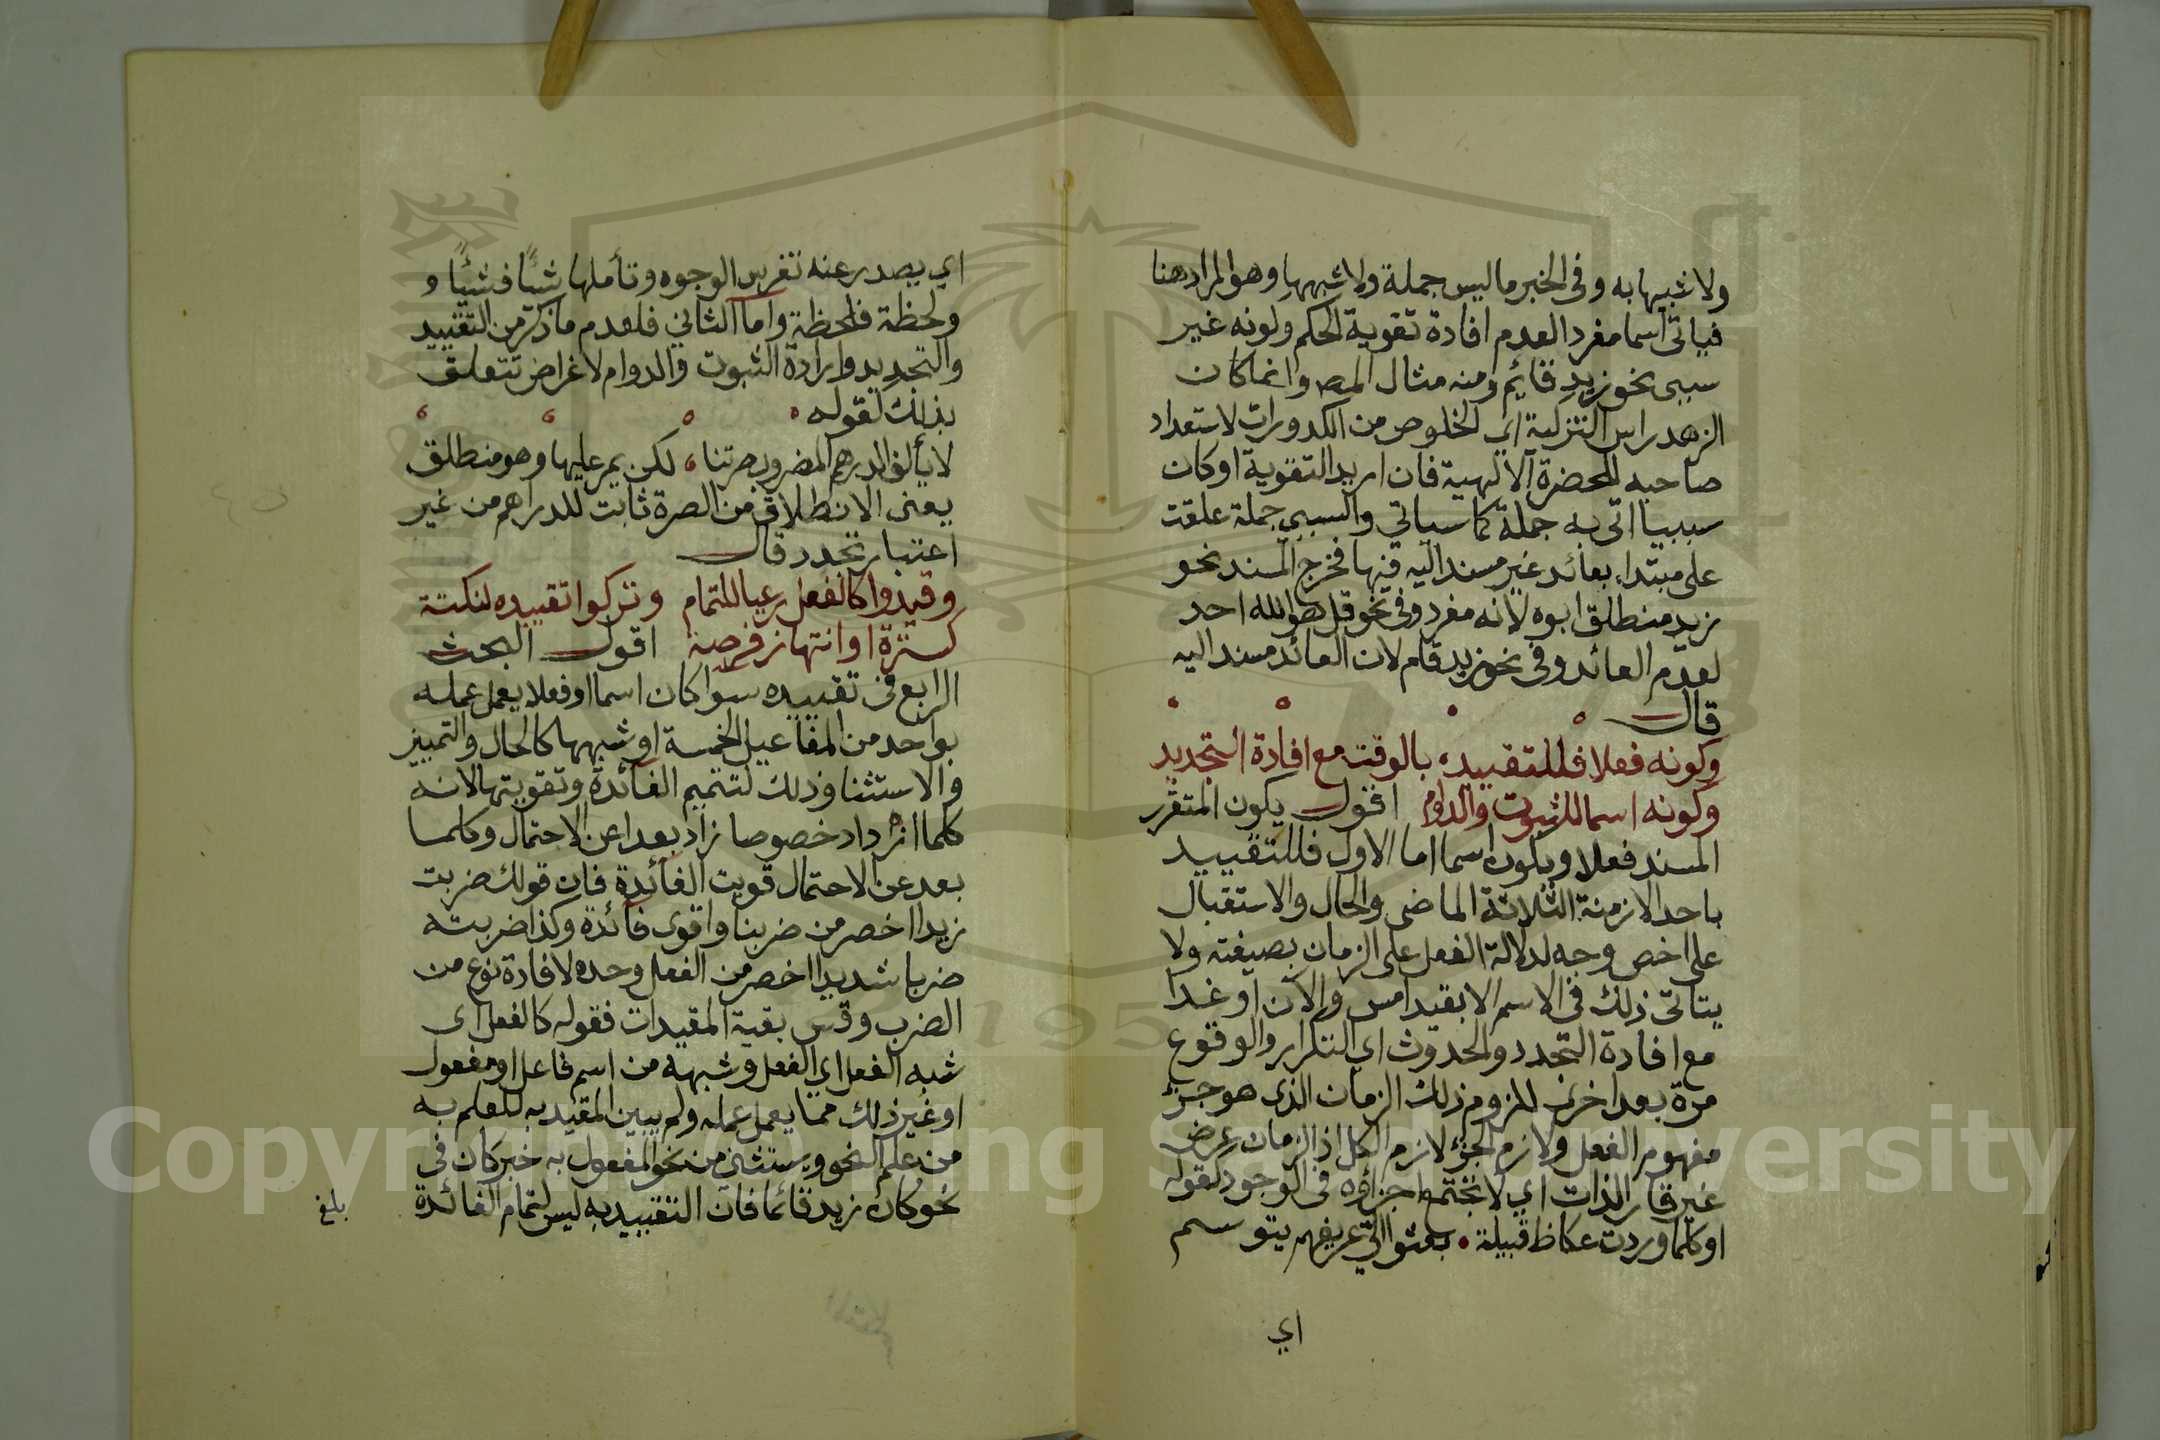 ولا شبيها به وفي الخبر ما ليس جملة ولا شبهها وهو المراد هنا
فياتي اسما مفردا لعدم افادة تقوية الحكم ولونه غير
سببي نحو زيد قايم ومنه مثال المص وانما كان
الزهد راس التزكية اي الخلوص من الكدورات لاستعداد
صاحبه للحضرة الالهية فان اريد التقوية او كان
سببيا اتى به جملة كما سياتي والسببي جملة علقت
على مبتداء بعائد غير مسند اليه فيها فخرج المسند نحو
زيد منطلق ابوه لانه مفرد وفي نحو قل هو الله احد
لعدم العائد وفي نحو زيد قام لان العائد مسند اليه
قال
وكونه فعلا فللتقييد بالوقت مع افادة التجديد
وكونه اسما للثبوت والدوام اقول يكون المتقرر
المسند فعلا ويكون اسما اما الاول فللتقييد
باحد الازمنة الثلاثة الماضي والحال والاستقبال
على اخص وجه لدلالة الفعل على الزمان بصيغته ولا
يتاتى ذلك في الاسم الا بقيد امس والآن او غدا
مع افادة التجدد والحدوث اي التكرار والوقوع
مرة بعد اخرى للزوم ذلك الزمان الذي هو جزؤ
مفهوم الفعل ولازم الجزؤ لازم الكل اذ الزمان عرض
غير قار الذات اي لا تجتمع اجزاؤه في الوجود لقوله
او كلما وردت عكاظ قبيلة بعثوا الي عريفهم يتوسم
اي
اي يصدر عنه تفرس الوجوه وتأملها شيئًا فشيئًا و
ولحظة فلحظة واما الثاني فلعدم ما ذكر من التقييد
والتجديد وارادة الثبوت والدوام لاغراض تتعلق
بذلك لقوله
لا يألف الدرهم المضروب صرتنا لكن يمر عليها وهو منطلق
يعني الانطلاق من الصرة ثابت للدراهم من غير
اعتبار تجدد قال
وقيدوا كالفعل رعيا للتمام وتركوا تقييده لنكتة
كسترة او انتهاز فرصة اقول البحث
الرابع في تقييده سوا كان اسما او فعلا يعمل عمله
بواحد من المفاعيل الخمسة او شبهها كالحال والتمييز
والاستثنا وذلك لتتميم الفائدة وتقويتها لانه
كلما ازداد خصوصا زاد بعدا عن الاحتمال وكلما
بعد عن الاحتمال قويت الفائدة فان قولك ضربت
زيدا اخص من ضربنا واقوى فائدة وكذا ضربته
ضربا شديدا اخص من الفعل وحده لافادة نوع من
الضرب وقس بقية المقيدات فقوله كالفعل اى
شبه الفعل اي الفعل وشبهه من اسم فاعل او مفعول
او غير ذلك مما يعمل عمله ولم يبين المقيد به للعلم به
من علم النحو ويستثني من نحو المفعول به خبر كان في
نحو كان زيد قائما فان التقييد به ليس لتمام الفائدة
بلغ
Copyright © King Saud University
195